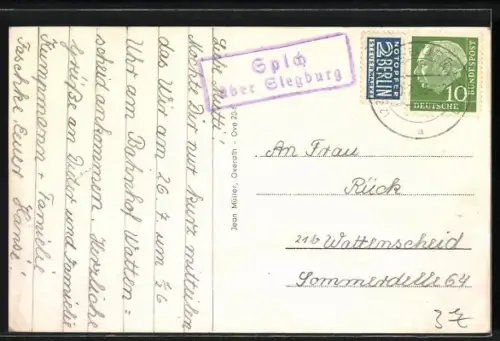 Liebe Mutti!
Möchte Dir nur kurz mitteilen
das Wir am 26.7. um
Uhr am Bahnhof Watten=
scheid ankommen. Herzliche
Grüße an Dieter und Familie
Kumpmann + Familie
Taschke Euer Hansi!
Spich
über Siegburg
NOTOPFER
2 BERLIN
STEUERMARKE
DEUTSCHE
BUNDESPOST
10
a
Jean Müller, Overath - Ove 20
An Frau
Rück
21b Wattenscheid
Sommerdelle 64